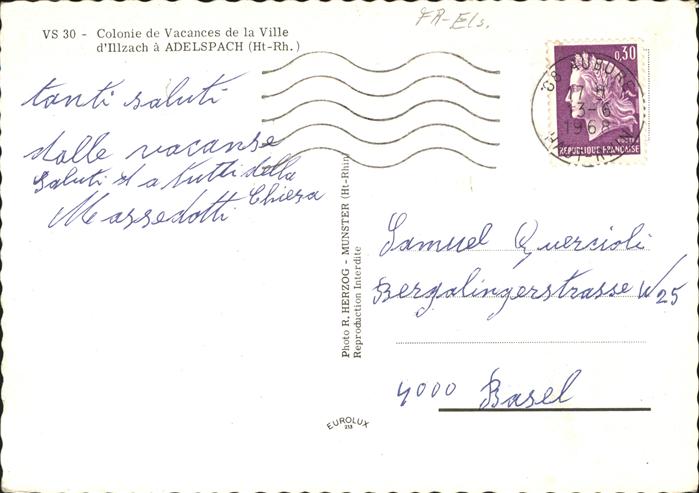 FR-Els.
VS 30 - Colonie de Vacances de la Ville
d'Illzach à ADELSPACH (Ht-Rh.)
0,30
3-6
RÉPUBLIQUE FRANÇAISE
tanti saluti
dalle vacanse
saluti a tutti della
Chiesa
Massedotti
Photo R. HERZOG - MUNSTER (Ht-Rhin)
Reproduction Interdite
Samuel Quercioli
Bergalingerstrasse 25
4000 Basel
EUROLUX